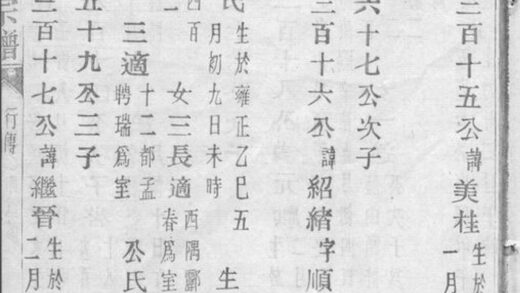 三百十五公諱美桂生於
一月
六十七公次子
三百十六公諱紹緒字順
氏生於雍正乙巳五
月初九日未時 生
四百
一 女三長適西隅酈
春爲室
三適十二都孟
聘瑞爲室 公氏
五十九公三子
三百十七公諱繼晉生於
二月
宗譜
行傳